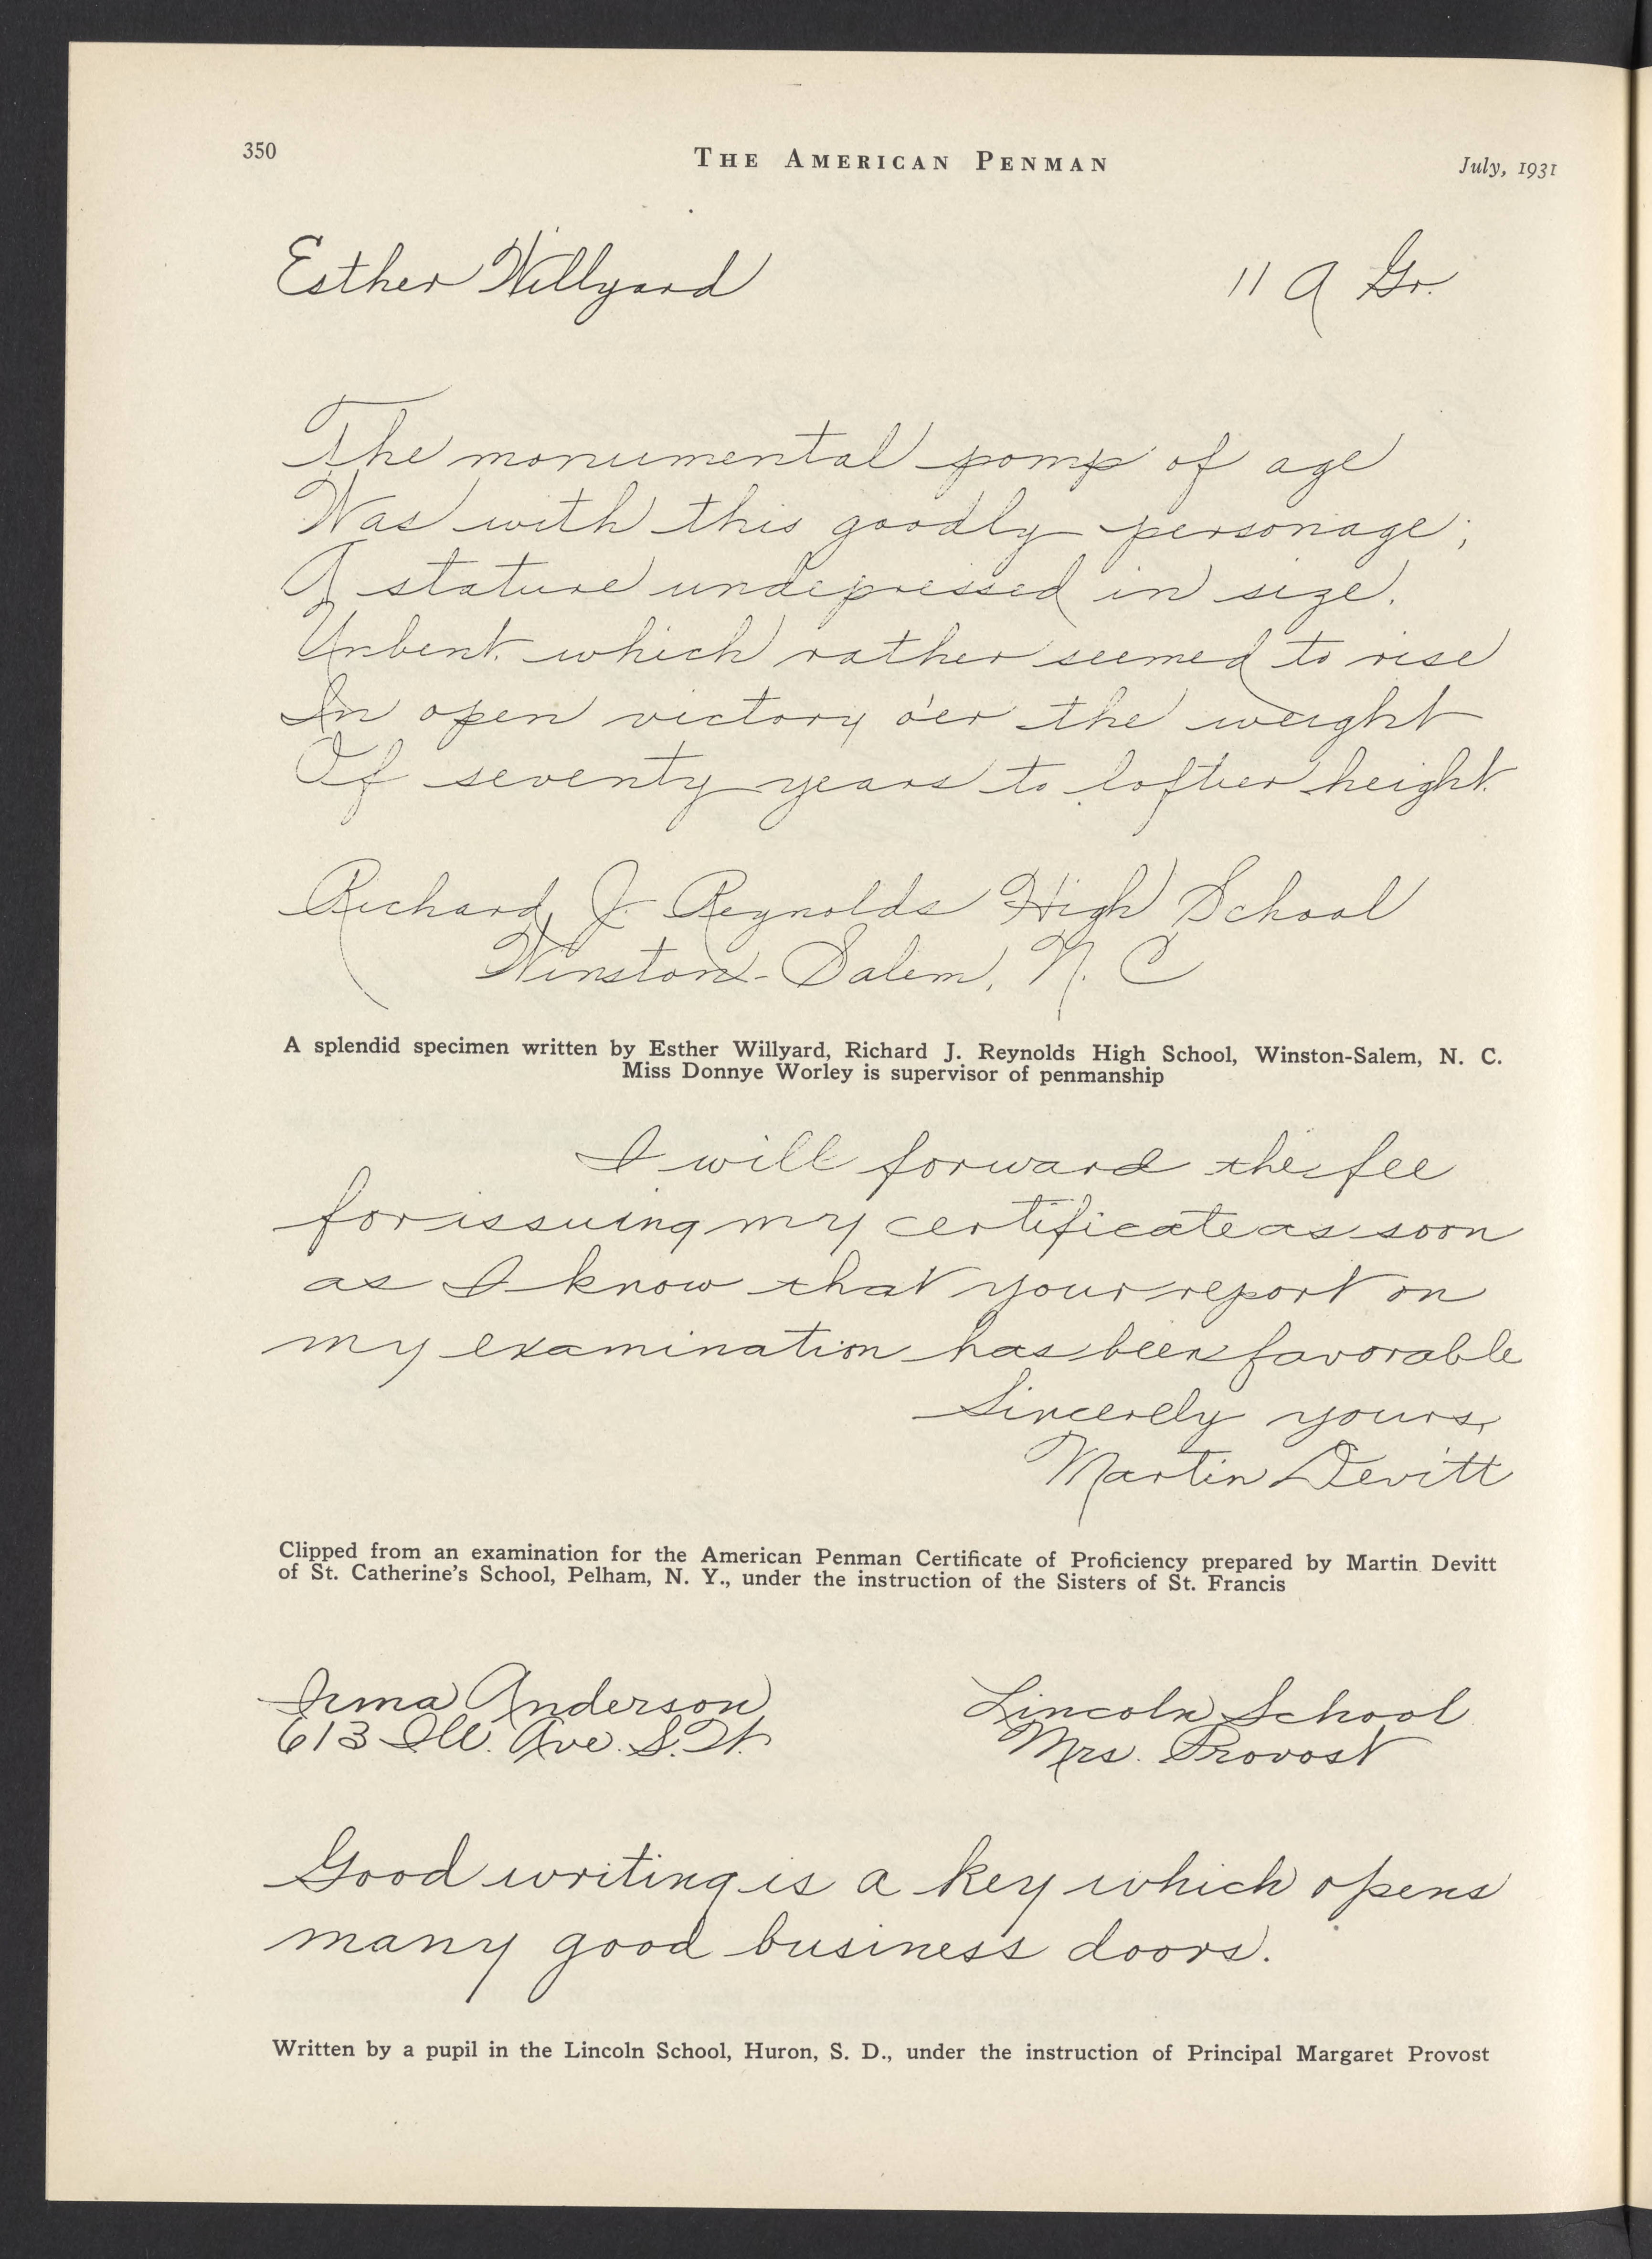 350
THE AMERICAN PENMAN
July, 1931
Esther Willyard
11 A Gr.
The monumental pomp of age
Was with this goodly personage;
A stature undepressed in size,
Unbent, which rather seemed to rise
In open victory o'er the weight
Of seventy years to loftier height.
Richard J. Reynolds High School
Winston-Salem, N. C
A splendid specimen written by Esther Willyard, Richard J. Reynolds High School, Winston-Salem, N. C.
Miss Donnye Worley is supervisor of penmanship
I will forward the fee
for issuing my certificate as soon
as I know that your report on
my examination has been favorable
Sincerely yours,
Martin Devitt
Clipped from an examination for the American Penman Certificate of Proficiency prepared by Martin Devitt
of St. Catherine's School, Pelham, N. Y., under the instruction of the Sisters of St. Francis
Irma Anderson
613 Ill. Ave. S.W.
Lincoln School
Mrs. Provost
Good writing is a key which opens
many good business doors.
Written by a pupil in the Lincoln School, Huron, S. D., under the instruction of Principal Margaret Provost